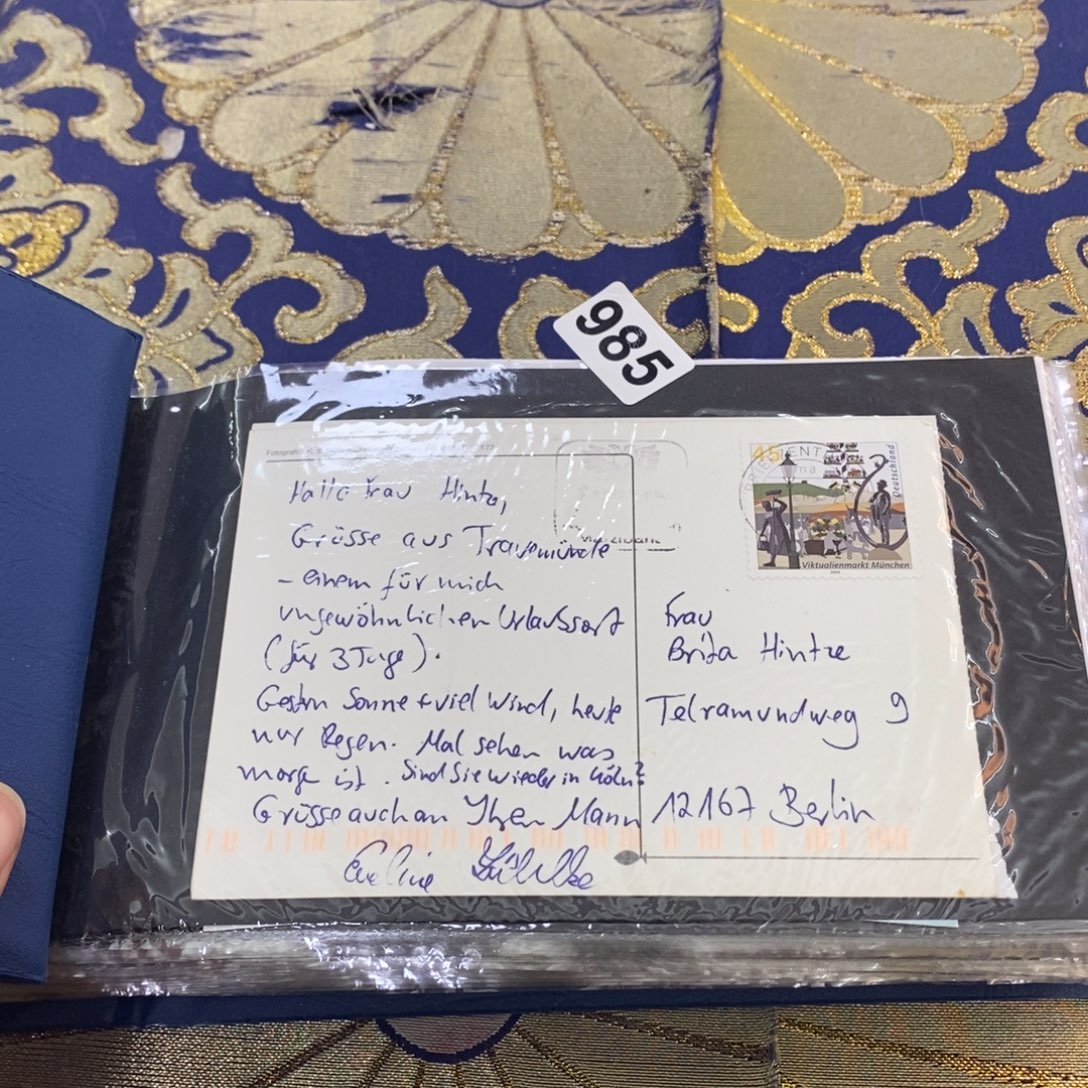 985
Hallo Frau Hintze,
Grüsse aus Travemünde
– einem für mich
ungewöhnlichen Urlaubsort
(für 3 Tage).
Gestern Sonne + viel Wind, heute
nur Regen. Mal sehen was
morgen ist. Sind Sie wieder in Köln?
Grüsse auch an Ihren Mann
Eveline
45
Deutschland
Viktualienmarkt München
Frau
Brita Hintze
Telramundweg 9
12167 Berlin